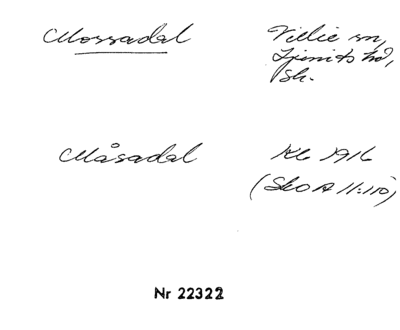 Mossadal
Villie sn,
Ljunits hd,
Sk.
Måsadal
Kb 1916
(SkO A 11:110)
Nr 22322